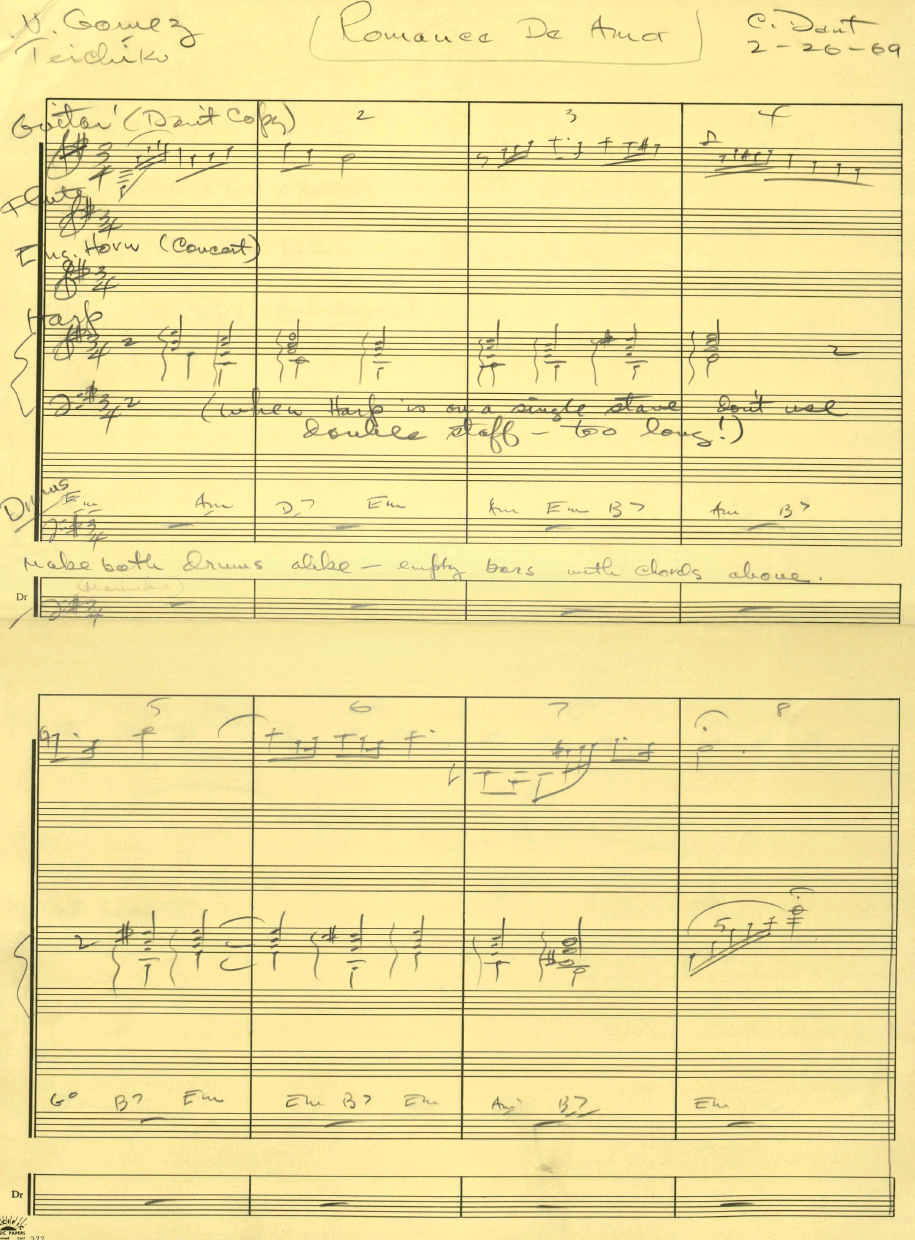 V. Gomez
Teichiku
Romance De Amor
C. Dant
2-26-69
Guitar (Don't Copy)
2
3
4
3/4
Flute
3/4
Eng. Horn (Concert)
3/4
Harp
3/4
3/4
(when Harp is on a single stave don't use
double staff - too long!)
Drums
Em Am D7 Em Am Em B7 Am B7
3/4
Make both drums alike - empty bars with chords above.
Dr
(Marimba)
3/4
5 6 7 8
5
G° B7 Em Em B7 Em Am B7 Em
Dr
322